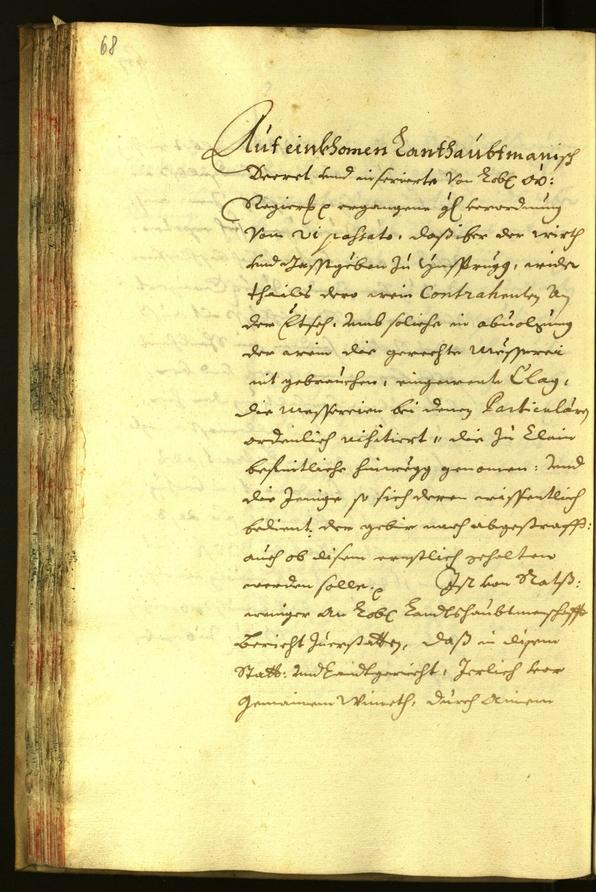 68
Auf einkhomen Lanthaubtmanisch
Decret und inserierte von Lobl: OÖ:
Regier: ergangene gl: verordnung
vom vi passato, daß iber der wirth
und Gasstgeben zu Ynsprugg, wider
thails dero wein Contrahenten an
der Etsch, umb soliche in abuolgung
der wein die gerechte Müesserei
nit gebrauchen, eingewente Clag,
die Messereien bei denen Particularn
ordenlich visitiert, die zu klein
befuntliche hinwegg genomen: und
die jenige so sich deren wissentlich
bedient, der gebir nach abgestrafft:
auch ob disem ernstlich gehalten
werden solle. Ist von Raths
wegen an Lobl: Landtshaubtmanschafft
Bericht zuerstatten, daß in disem
Statt: und Landtgericht, Jerlich vor
gemainem Wimeth, durch ainem